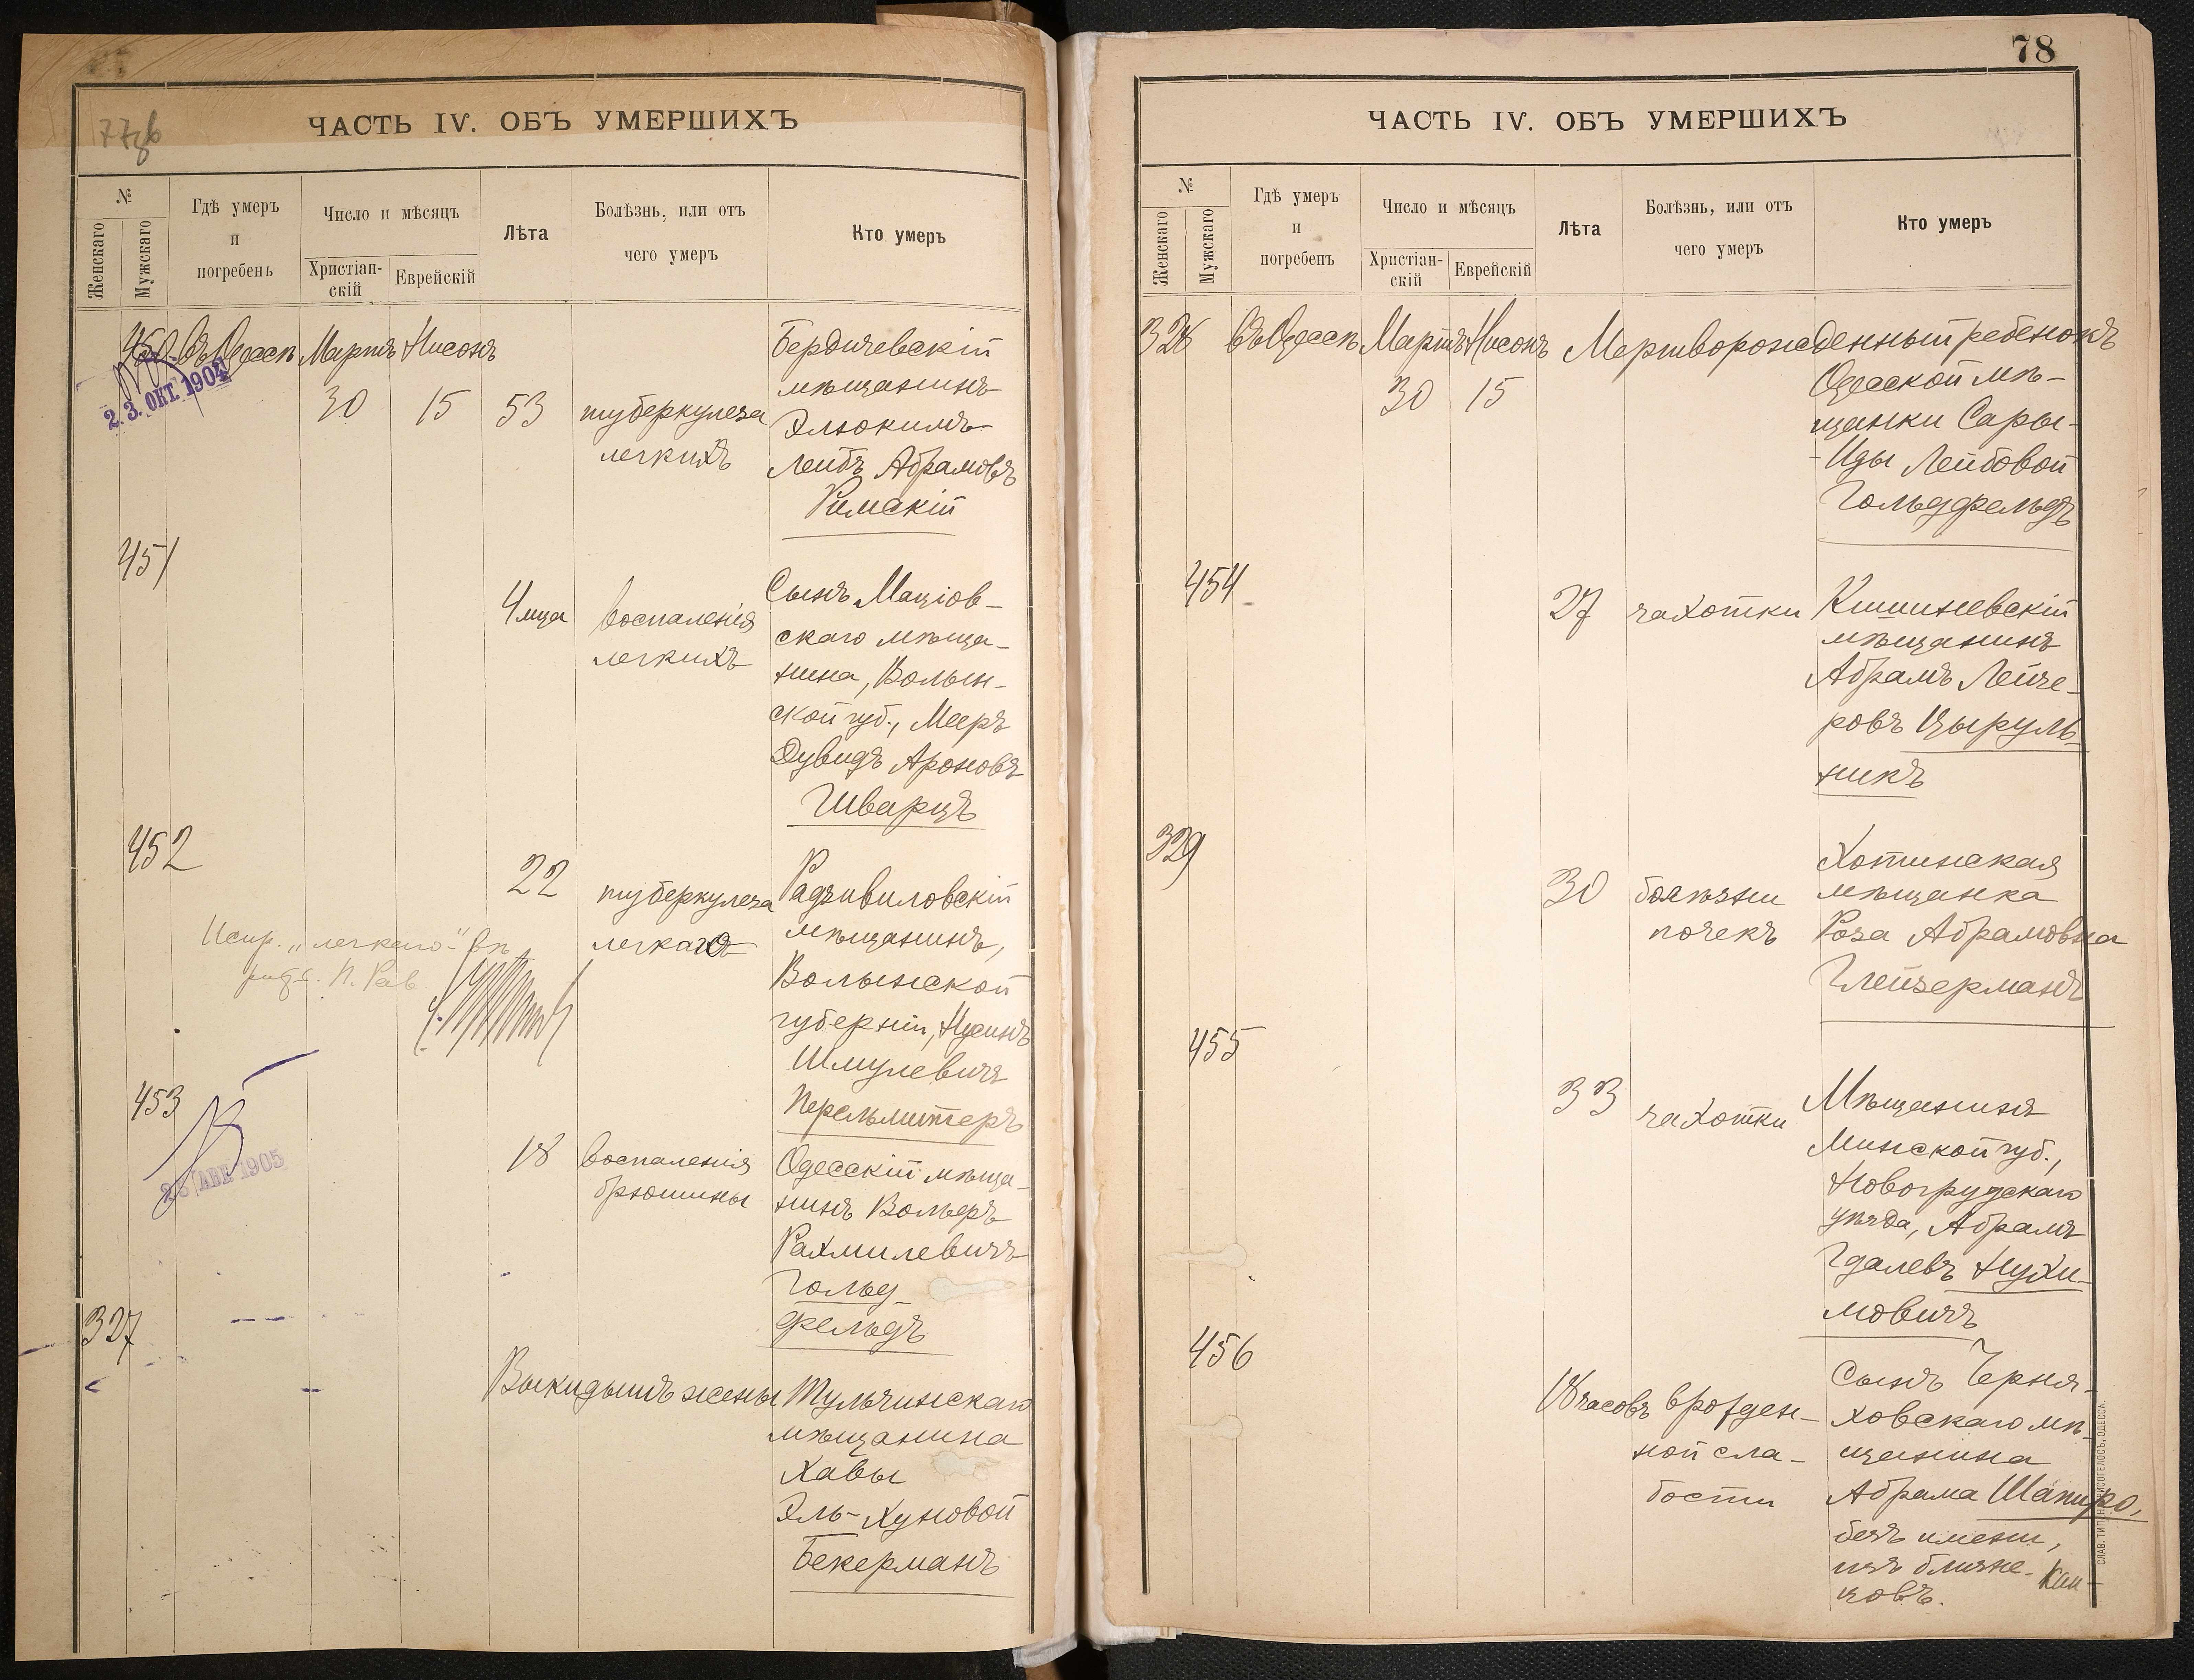 77 об
ЧАСТЬ IV. ОБЪ УМЕРШИХЪ
№
Женскаго
Мужскаго
Гдѣ умеръ
и
погребенъ
Число и мѣсяцъ
Христіан-
скій
Еврейскій
Лѣта
Болѣзнь, или отъ
чего умеръ
Кто умеръ
450 въ Одессѣ Мартъ Нисонъ
30 15 53 туберкулеза
легкихъ
Бердичевскій
мѣщанинъ
Элюкимъ-
Лейбъ Абрамовъ
Римскій
2.3. ОКТ. 1904
451
4 мца воспаленія
легкихъ
Сынъ Маціов-
скаго мѣща-
нина, Волын-
ской губ., Мееръ
Дувидъ Ароновъ
Шварцъ
452
22 туберкулеза
легкихъ
Радзивиловскій
мѣщанинъ,
Волынской
губерніи, Нусинъ
Шмулевичъ
Перельмитеръ
Испр. „легкаго“ вѣ
453
1905
18 воспаленія
брюшины
Одесскій мѣща-
нинъ Вольфъ
Рахмилевичъ
Гольд-
фельдъ
327
Выкидышъ жены Тульчинскаго
мѣщанина
Хавы
Эль-Хуновой
Бекерманъ
78
ЧАСТЬ IV. ОБЪ УМЕРШИХЪ
№
Женскаго
Мужскаго
Гдѣ умеръ
и
погребенъ
Число и мѣсяцъ
Христіан-
скій
Еврейскій
Лѣта
Болѣзнь, или отъ
чего умеръ
Кто умеръ
328 въ Одессѣ Мартъ Нисонъ Мертворожденный ребенокъ
30 15
Одесской мѣ-
щанки Сары-
-Иды Лейбовой
Гольдфельдъ
454
27 чахотки Кишиневскій
мѣщанинъ
Абрамъ Лейзе-
ровъ Цыруль-
никъ
329
30 болѣзни
почекъ
Хотинская
мѣщанка
Роза Абрамовна
Глейзерманъ
455
33 чахотки
Мѣщанинъ
Минской губ.,
Новогрудскаго
уѣзда, Абрамъ
Гдалевъ Нухи-
мовичъ
456
18 часовъ врожден-
ной сла-
бости
Сынъ Черня-
ховскаго мѣ-
щанина
Абрама Шапиро,
безъ имени,
изъ близне-
цовъ.
СЛАВ. ТИП. Н. ХРИСОГЕЛОСЪ, ОДЕССА.